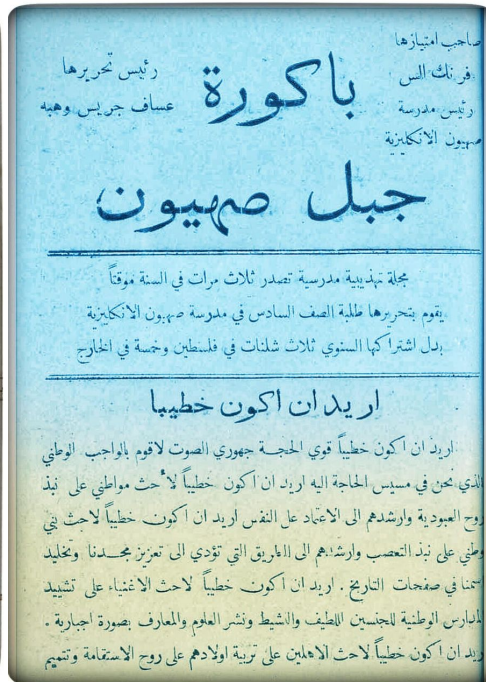 صاحب امتيازها
فرنك الس
رئيس مدرسة
صهيون الانكليزية
رئيس تحريرها
عساف جريس وهبه
باكورة
جبل صهيون
مجلة تهذيبية مدرسية تصدر ثلاث مرات في السنة موقتاً
يقوم بتحريرها طلبة الصف السادس في مدرسة صهيون الانكليزية
بدل اشتراكها السنوي ثلاث شلنات في فلسطين وخمسة في الخارج
اريد ان اكون خطيبا
اريد ان اكون خطيباً قوي الحجة جهوري الصوت لاقوم بالواجب الوطني
الذي نحن في مسيس الحاجة اليه اريد ان اكون خطيباً لأحث مواطني على نبذ
روح العبودية وارشدهم الى الاعتماد على النفس اريد ان اكون خطيباً لاحث بني
وطني على نبذ التعصب وارشدهم الى الطريق التي تؤدي الى تعزيز مجدنا وتخليد
اسمنا في صفحات التاريخ . اريد ان اكون خطيباً لاحث الاغنياء على تشييد
المدارس الوطنية للجنسين اللطيف والنشيط ونشر العلوم والمعارف بصورة اجبارية .
اريد ان اكون خطيباً لاحث الاهلين على تربية اولادهم على روح الاستقامة وتتميم